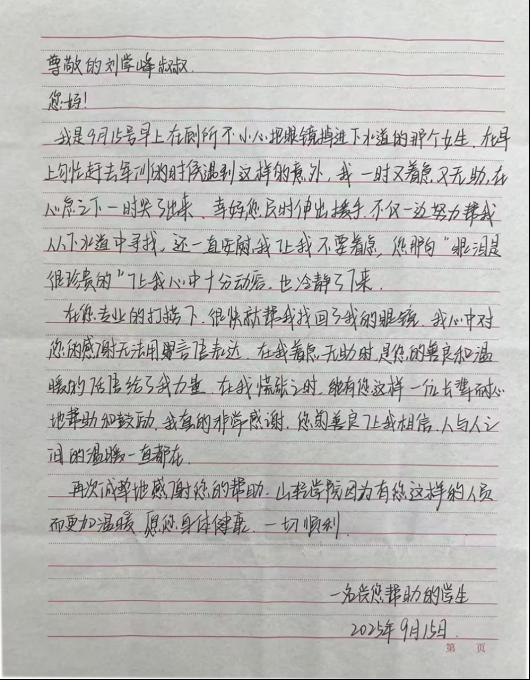 尊敬的刘学峰叔叔.
您好!
我是9月15号早上在厕所不小心把眼镜掉进下水道的那个女生.在早
上匆忙赶去军训的时候遇到这样的意外,我一时又着急又无助,在
心急之下一时哭了出来.幸好您及时伸出援手.不仅一边努力帮我
从下水道中寻找,还一直安慰我让我不要着急,您那句“眼泪是
很珍贵的”让我心中十分动容,也冷静了下来.
在您专业的打捞下.很快就帮我找回了我的眼镜.我心中对
您的感谢无法用言语表达.在我着急无助时,是您的善良和温
暖的话语给了我力量.在我慌张之时.能有您这样一位长辈耐心
地帮助和鼓励,我真的非常感谢.您的善良让我相信.人与人之
间的温暖一直都在.
再次诚挚地感谢您的帮助.山轻学院因为有您这样的人员
而更加温暖.愿您身体健康.一切顺利.
一名受您帮助的学生
2025年9月15日.
第 页